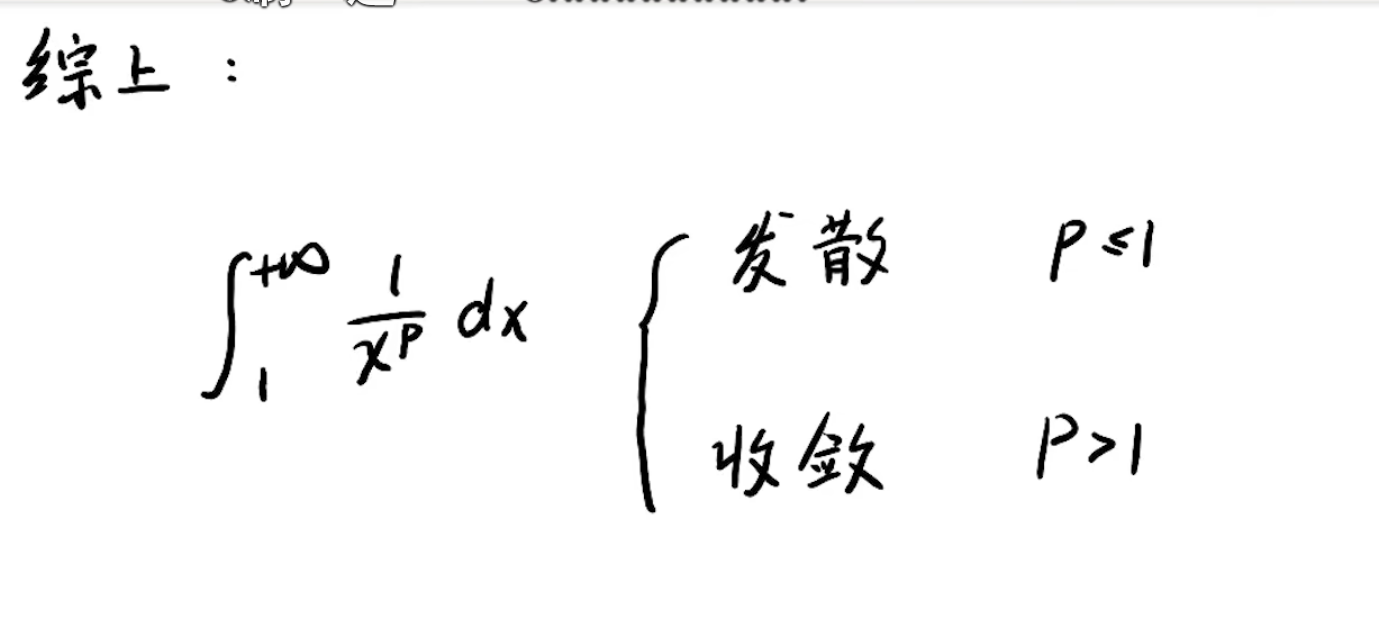 综上：
∫₁^{+∞} 1/x^p dx { 发散 P≤1
收敛 P>1